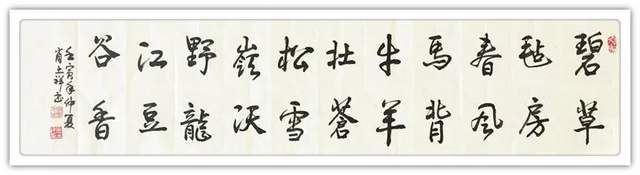 碧草
毡房
春风
馬背
牛羊
壮蒼
松雪
嶺沃
野龍
江豆
谷香
壬寅年仲夏
肖祥书